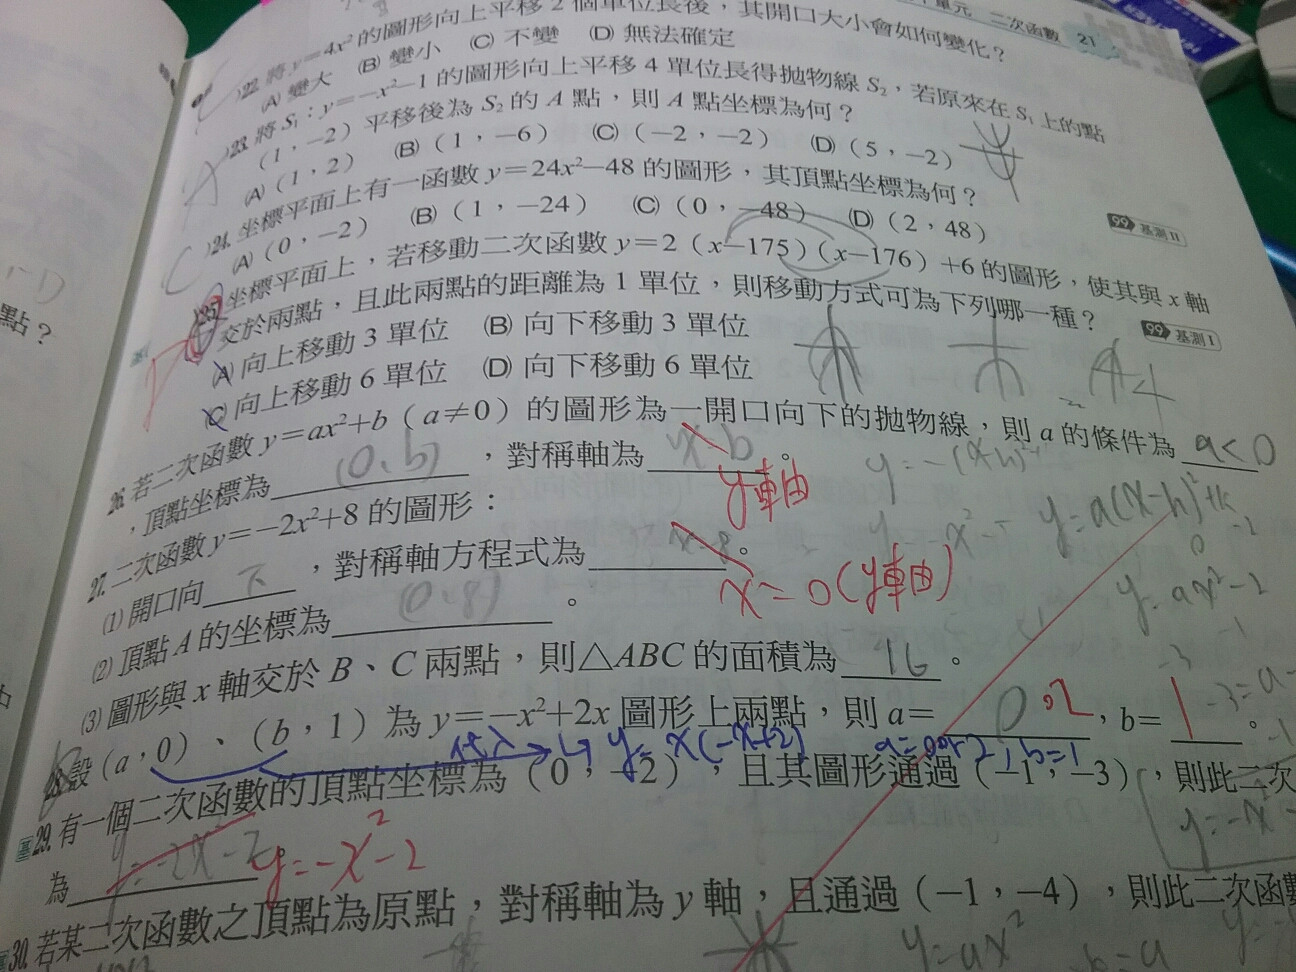 單元 二次函數 21
22. 將y=4x²的圖形向上平移2個單位長後，其開口大小會如何變化？
(A) 變大 (B) 變小 (C) 不變 (D) 無法確定
23. 將S₁：y=-x²-1的圖形向上平移4單位長得拋物線S₂，若原來在S₁上的點
(1，-2) 平移後為S₂的A點，則A點坐標為何？
(A) (1，2) (B) (1，-6) (C) (-2，-2) (D) (5，-2)
24. 坐標平面上有一函數y=24x²-48的圖形，其頂點坐標為何？
(A) (0，-2) (B) (1，-24) (C) (0，-48) (D) (2，48)
99 基測II
25. 坐標平面上，若移動二次函數y=2(x-175)(x-176)+6的圖形，使其與x軸
交於兩點，且此兩點的距離為1單位，則移動方式可為下列哪一種？
99 基測I
(A) 向上移動3單位 (B) 向下移動3單位
(C) 向上移動6單位 (D) 向下移動6單位
26. 若二次函數y=ax²+b(a≠0)的圖形為一開口向下的拋物線，則a的條件為 a<0
，頂點坐標為 (0,b) ，對稱軸為 y軸 。
27. 二次函數y=-2x²+8的圖形：
(1) 開口向 下 ，對稱軸方程式為 x=0(y軸) 。
(2) 頂點A的坐標為 (0,8) 。
(3) 圖形與x軸交於B、C兩點，則△ABC的面積為 16 。
y=a(x-h)²+k
y=ax²-2
28. 設(a，0)、(b，1)為y=-x²+2x圖形上兩點，則a= 0,2 ，b= 1 。
代入 y=x(-x+2) a=0or2，b=1
29. 有一個二次函數的頂點坐標為(0，-2)，且其圖形通過(-1，-3)，則此二次
為 y=-x²-2
30. 若某二次函數之頂點為原點，對稱軸為y軸，且通過(-1，-4)，則此二次函數
y=ax²
點？